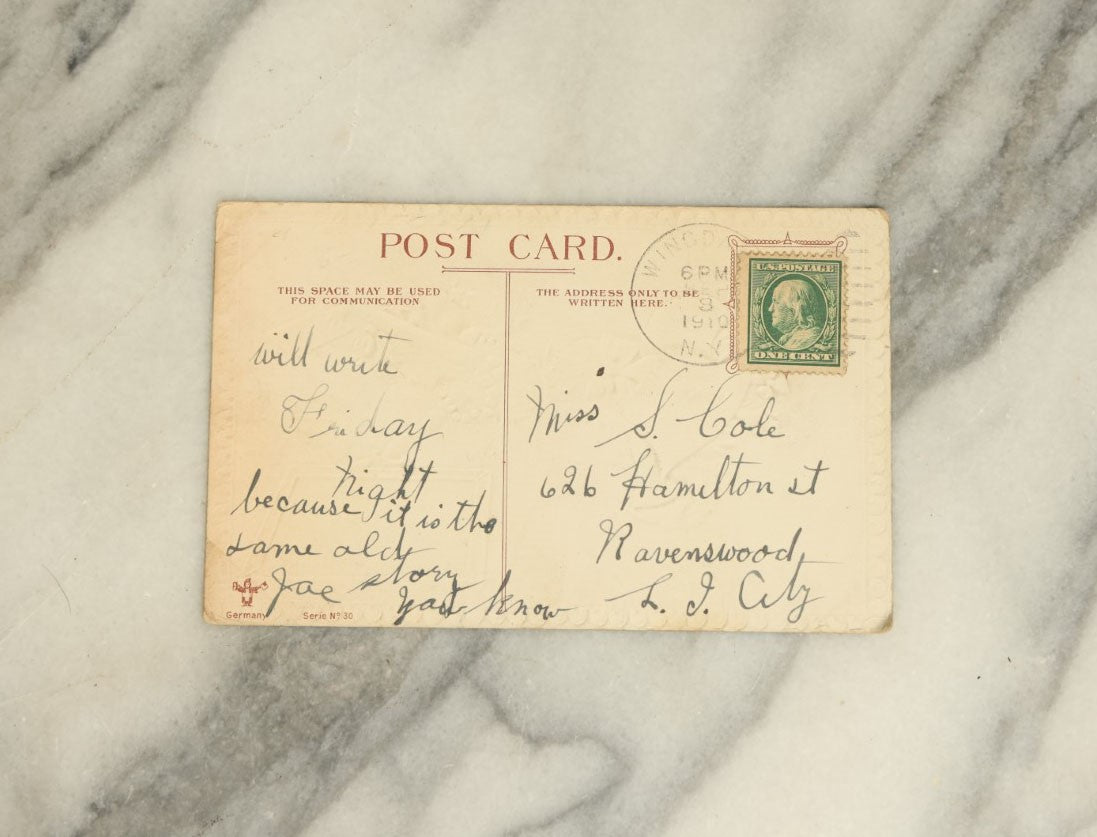 POST CARD.
THIS SPACE MAY BE USED
FOR COMMUNICATION
THE ADDRESS ONLY TO BE
WRITTEN HERE.
WINGD
6 PM
8
1910
N.Y
U.S. POSTAGE
ONE CENT
will write
Friday
Night
because it is the
same old
story
Joe
you know
Miss S. Cole
626 Hamilton st
Ravenswood
L. I. City
Germany
Serie Nº 30